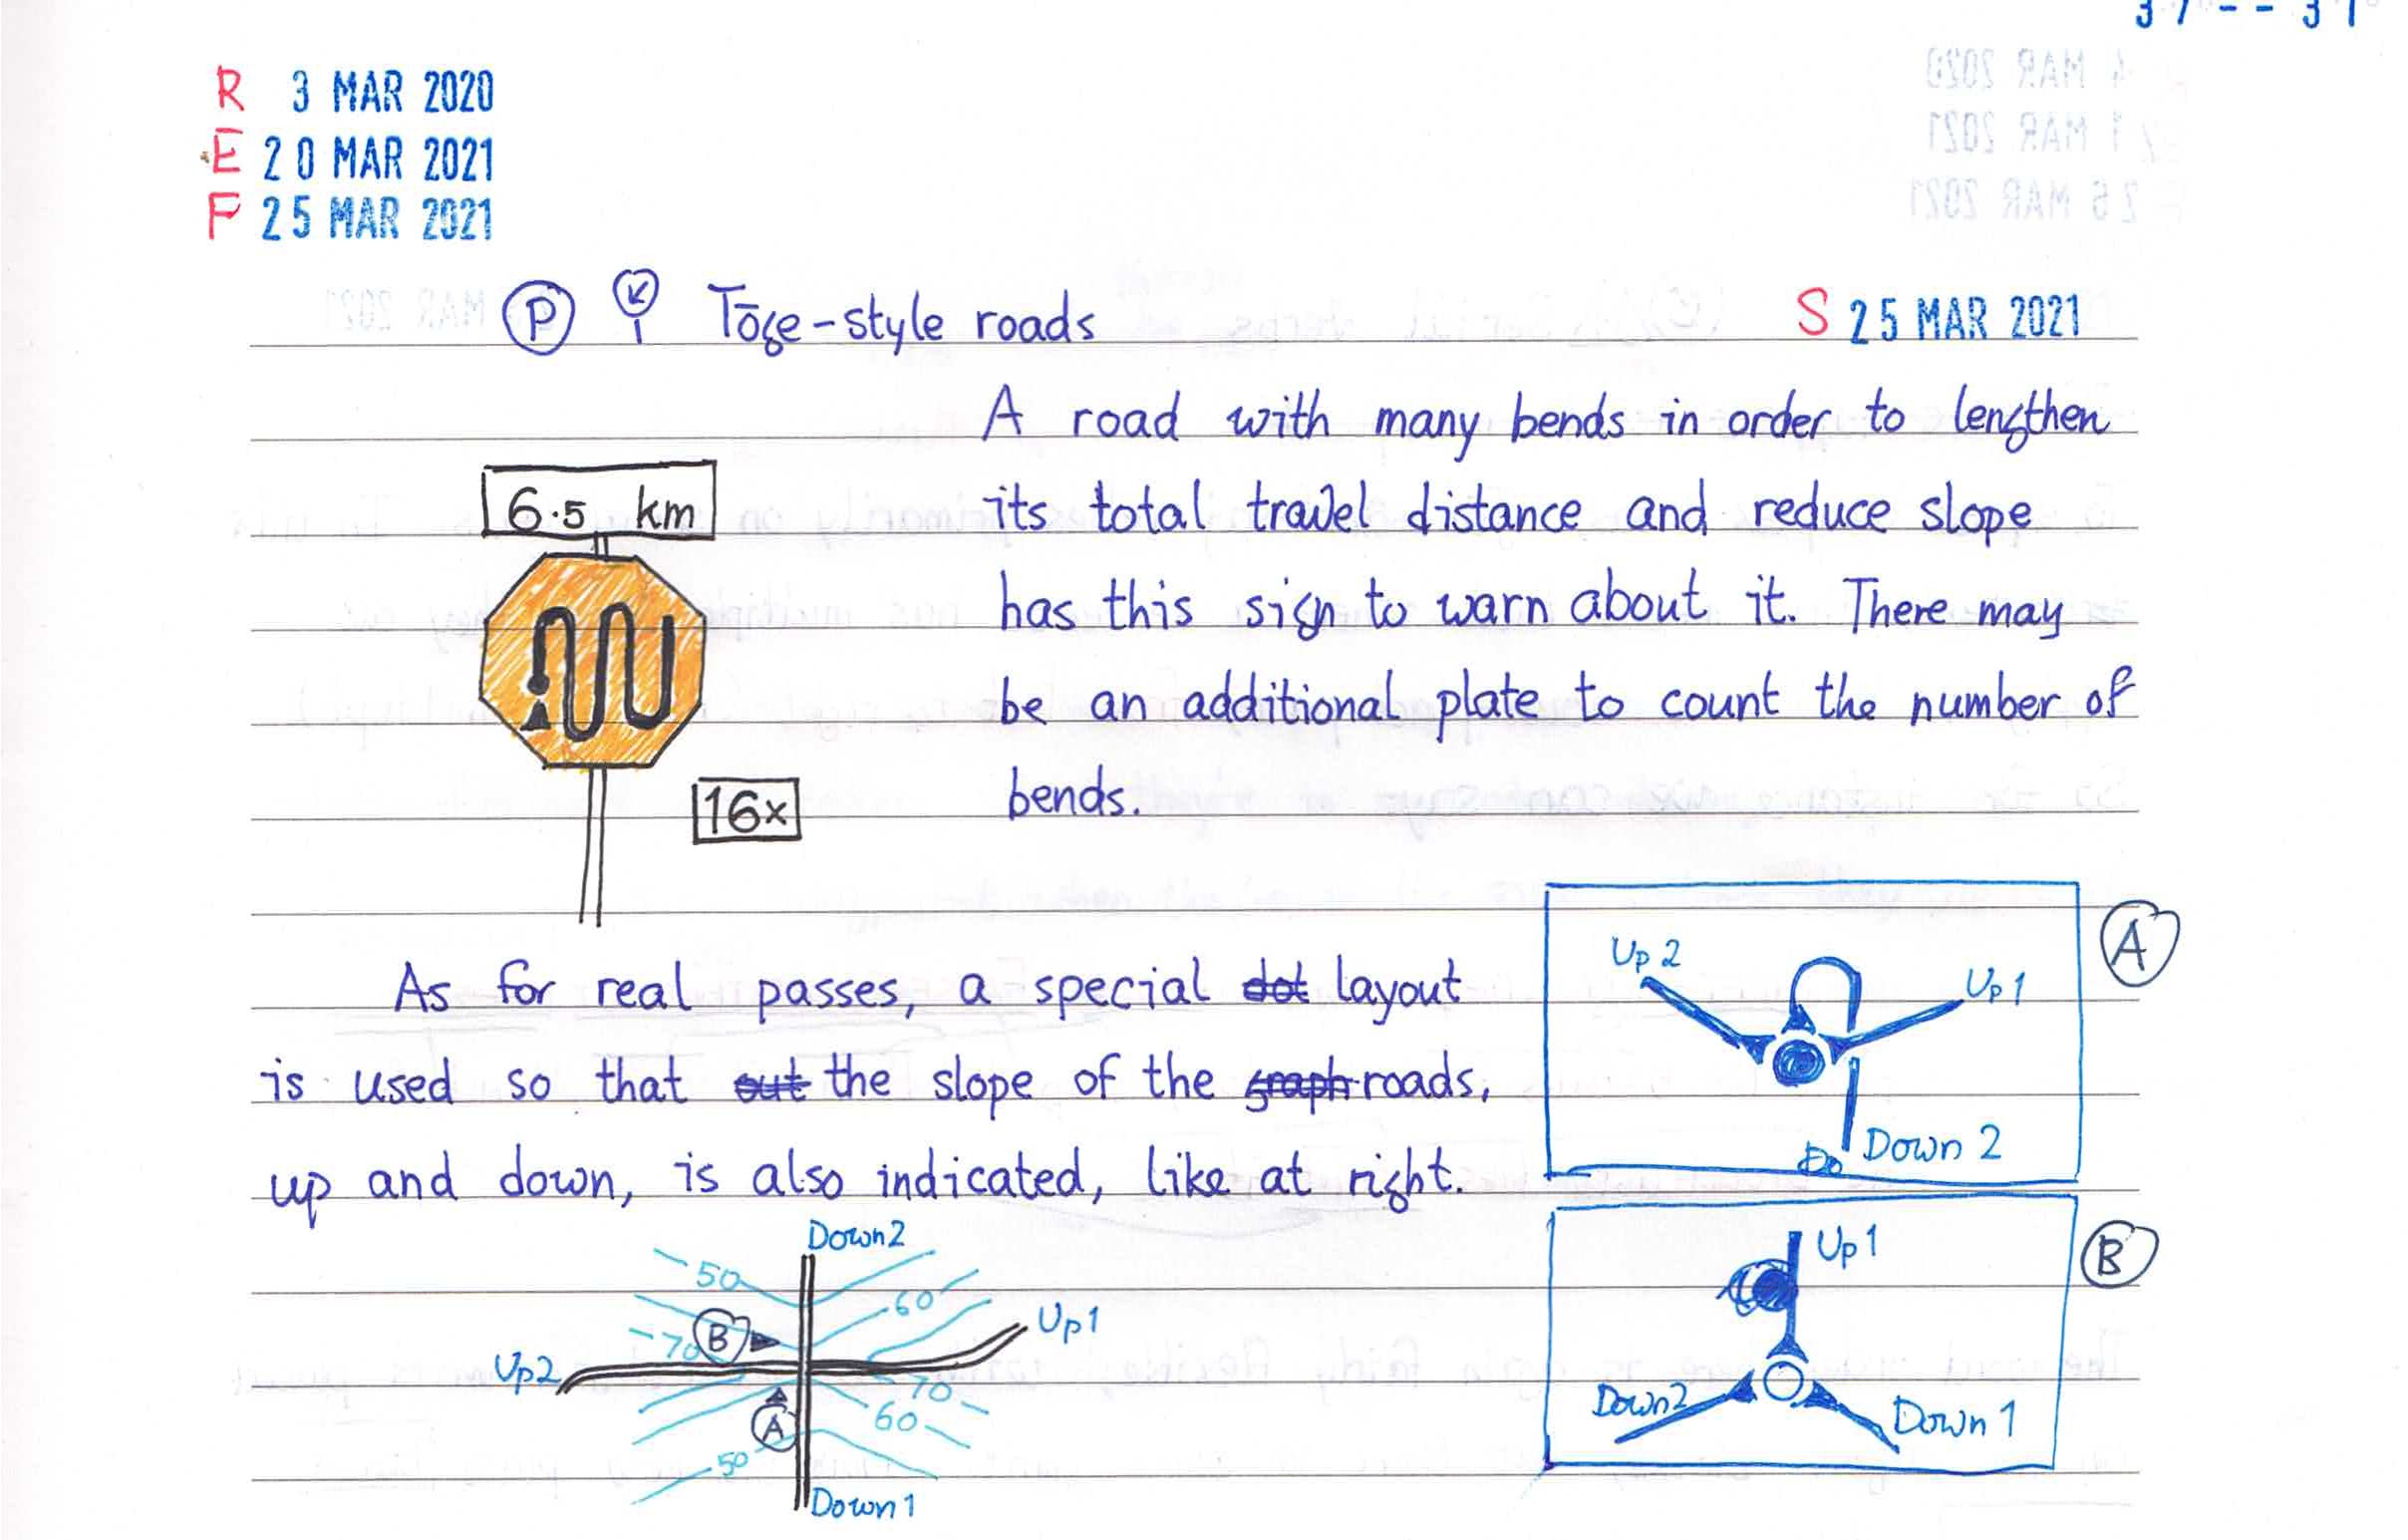 37--37
R 3 MAR 2020
E 20 MAR 2021
F 25 MAR 2021
P Tōge-style roads S 25 MAR 2021
A road with many bends in order to lengthen
its total travel distance and reduce slope
has this sign to warn about it. There may
be an additional plate to count the number of
bends.
6.5 km
16x
As for real passes, a special dot layout
is used so that out the slope of the graph roads,
up and down, is also indicated, like at right.
A
Up 2
Up 1
Do Down 2
B
Up 1
Down2
Down 1
Down2
50
60
70
B
Up1
Up2
70
A
60
50
Down1